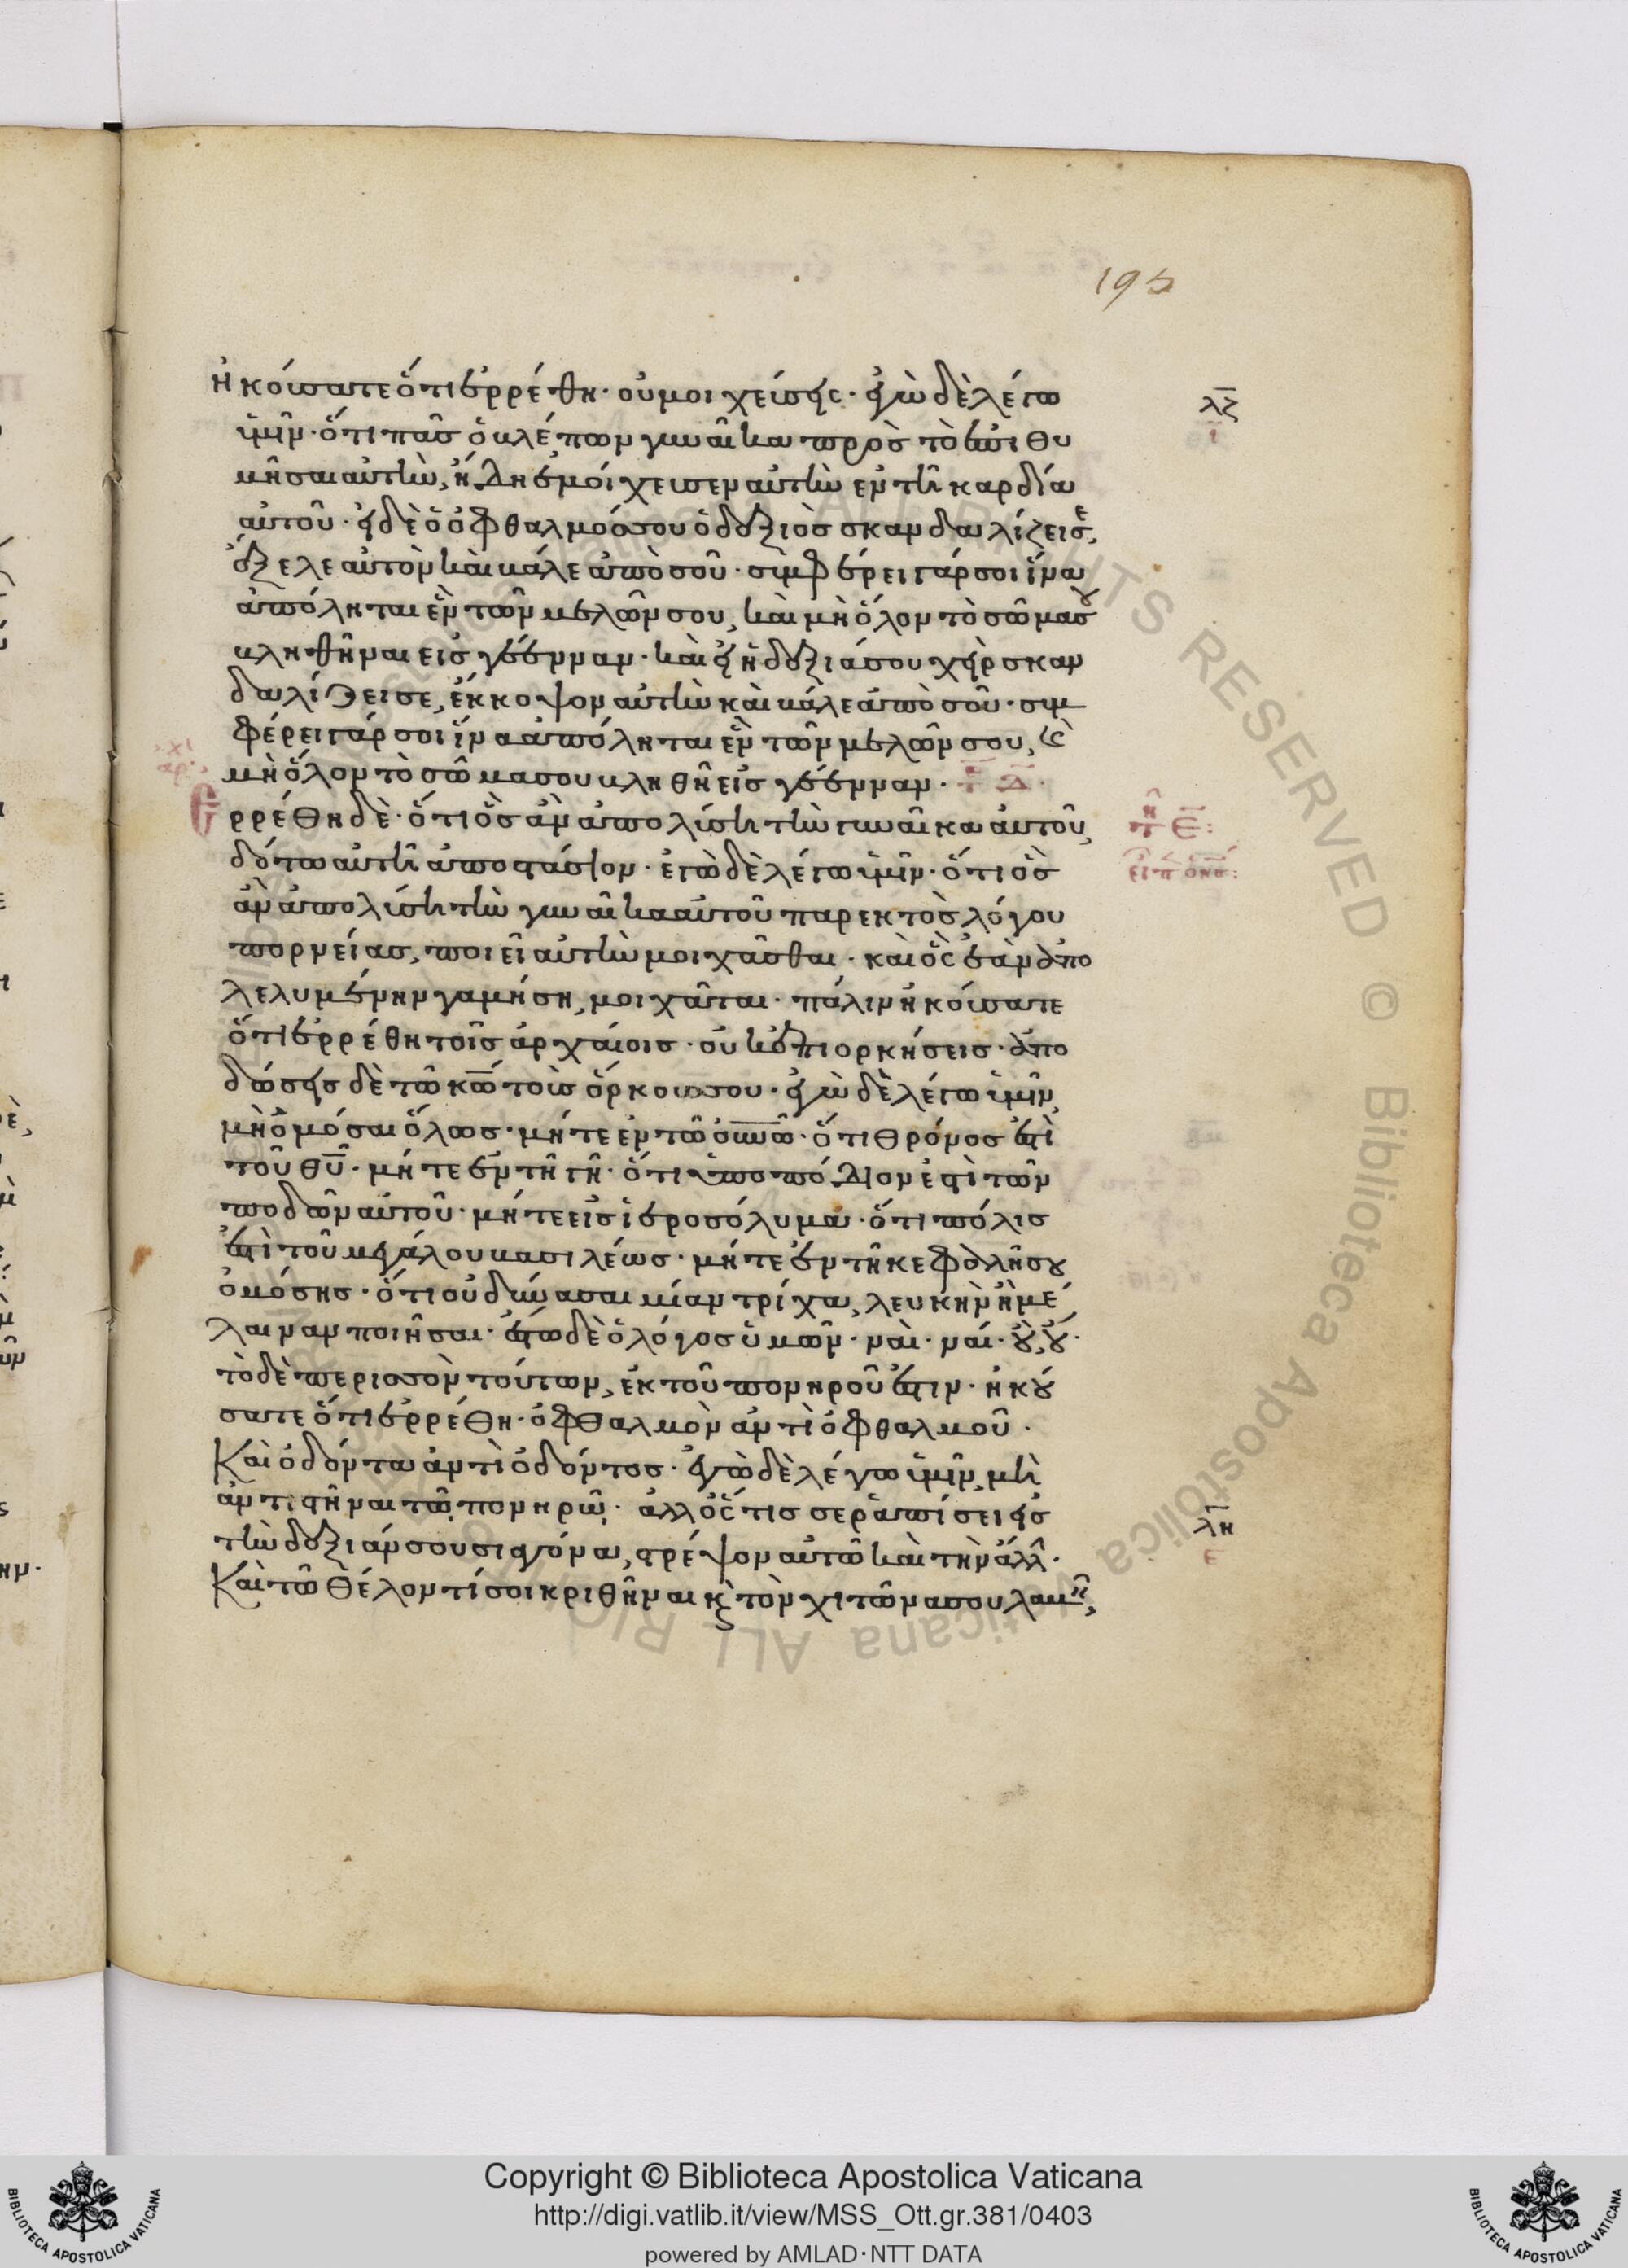 195
ἠκούσατε ὅτι ἐρρέθη· οὐ μοιχεύσεις· ἐγὼ δὲ λέγω
λζ
ι
ὑμῖν· ὅτι πᾶς ὁ βλέπων γυναῖκα πρὸς τὸ ἐπιθυ
μῆσαι αὐτὴν, ἤδη ἐμοίχευσεν αὐτὴν ἐν τῆ καρδία
αὐτοῦ· εἰ δὲ ὁ ὀφθαλμός σου ὁ δεξιὸς σκανδαλίζει σε,
ἔξελε αὐτὸν καὶ βάλε ἀπὸ σοῦ· συμφέρει γάρ σοι ἵνα
ἀπόληται ἓν τῶν μελῶν σου, καὶ μὴ ὅλον τὸ σῶμα σου
βληθῆναι εἰς γέενναν· καὶ εἰ ἡ δεξιά σου χεὶρ σκαν
δαλίζει σε, ἔκκοψον αὐτὴν καὶ βάλε ἀπὸ σοῦ· συμ
φέρει γάρ σοι ἵνα ἀπόληται ἓν τῶν μελῶν σου, καὶ
μὴ ὅλον τὸ σῶμα σου βληθῆ εἰς γέενναν·
Ἐρρέθη δὲ· ὅτι ὃς ἂν ἀπολύση τὴν γυναῖκα αὐτοῦ,
δότω αὐτῆ ἀποστάσιον· ἐγὼ δὲ λέγω ὑμῖν· ὅτι ὃς
ἂν ἀπολύση τὴν γυναῖκα αὐτοῦ παρεκτὸς λόγου
πορνείας, ποιεῖ αὐτὴν μοιχᾶσθαι· καὶ ὃς ἐὰν ἀπο
λελυμένην γαμήση, μοιχᾶται· πάλιν ἠκούσατε
ὅτι ἐρρέθη τοῖς ἀρχαίοις· οὐκ ἐπιορκήσεις· ἀπο
δώσεις δὲ τῶ κω τοὺς ὅρκους σου· ἐγὼ δὲ λέγω ὑμῖν,
μὴ ὀμόσαι ὅλως· μήτε ἐν τῶ ουνω· ὅτι θρόνος ἐστὶ
τοῦ θυ· μήτε ἐν τῆ γῆ· ὅτι ὑποπόδιον ἐστὶ τῶν
ποδῶν αὐτοῦ· μήτε εἰς ἱεροσόλυμα· ὅτι πόλις
ἐστὶ τοῦ μεγάλου βασιλέως· μήτε ἐν τῆ κεφαλῆ σου
ὀμόσης· ὅτι οὐ δύνασαι μίαν τρίχα, λευκὴν ἢ μέ
λαιναν ποιῆσαι· ἔστω δὲ ὁ λόγος ὑμῶν· ναὶ· ναί· οὒ, οὔ·
τὸ δὲ περισσὸν τούτων, ἐκ τοῦ πονηροῦ ἐστιν· ἠκού
σατε ὅτι ἐρρέθη· ὀφθαλμὸν ἀντὶ ὀφθαλμοῦ·
Καὶ ὀδόντα ἀντὶ ὀδόντος· ἐγὼ δὲ λέγω ὑμῖν, μὴ
ἀντιστῆναι τῶ πονηρῶ· ἀλλ' ὅστις σε ῥαπίσει εἰς
λη
ε
τὴν δεξιάν σου σιαγόνα, στρέψον αὐτῶ καὶ τὴν ἄλλ·
Καὶ τῶ θέλοντί σοι κριθῆναι καὶ τὸν χιτῶνα σου λαβεῖν,
RIGHTS RESERVED © Biblioteca Apostolica Vaticana ALL
Copyright © Biblioteca Apostolica Vaticana
http://digi.vatlib.it/view/MSS_Ott.gr.381/0403
powered by AMLAD·NTT DATA
BIBLIOTECA APOSTOLICA VATICANA
BIBLIOTECA APOSTOLICA VATICANA